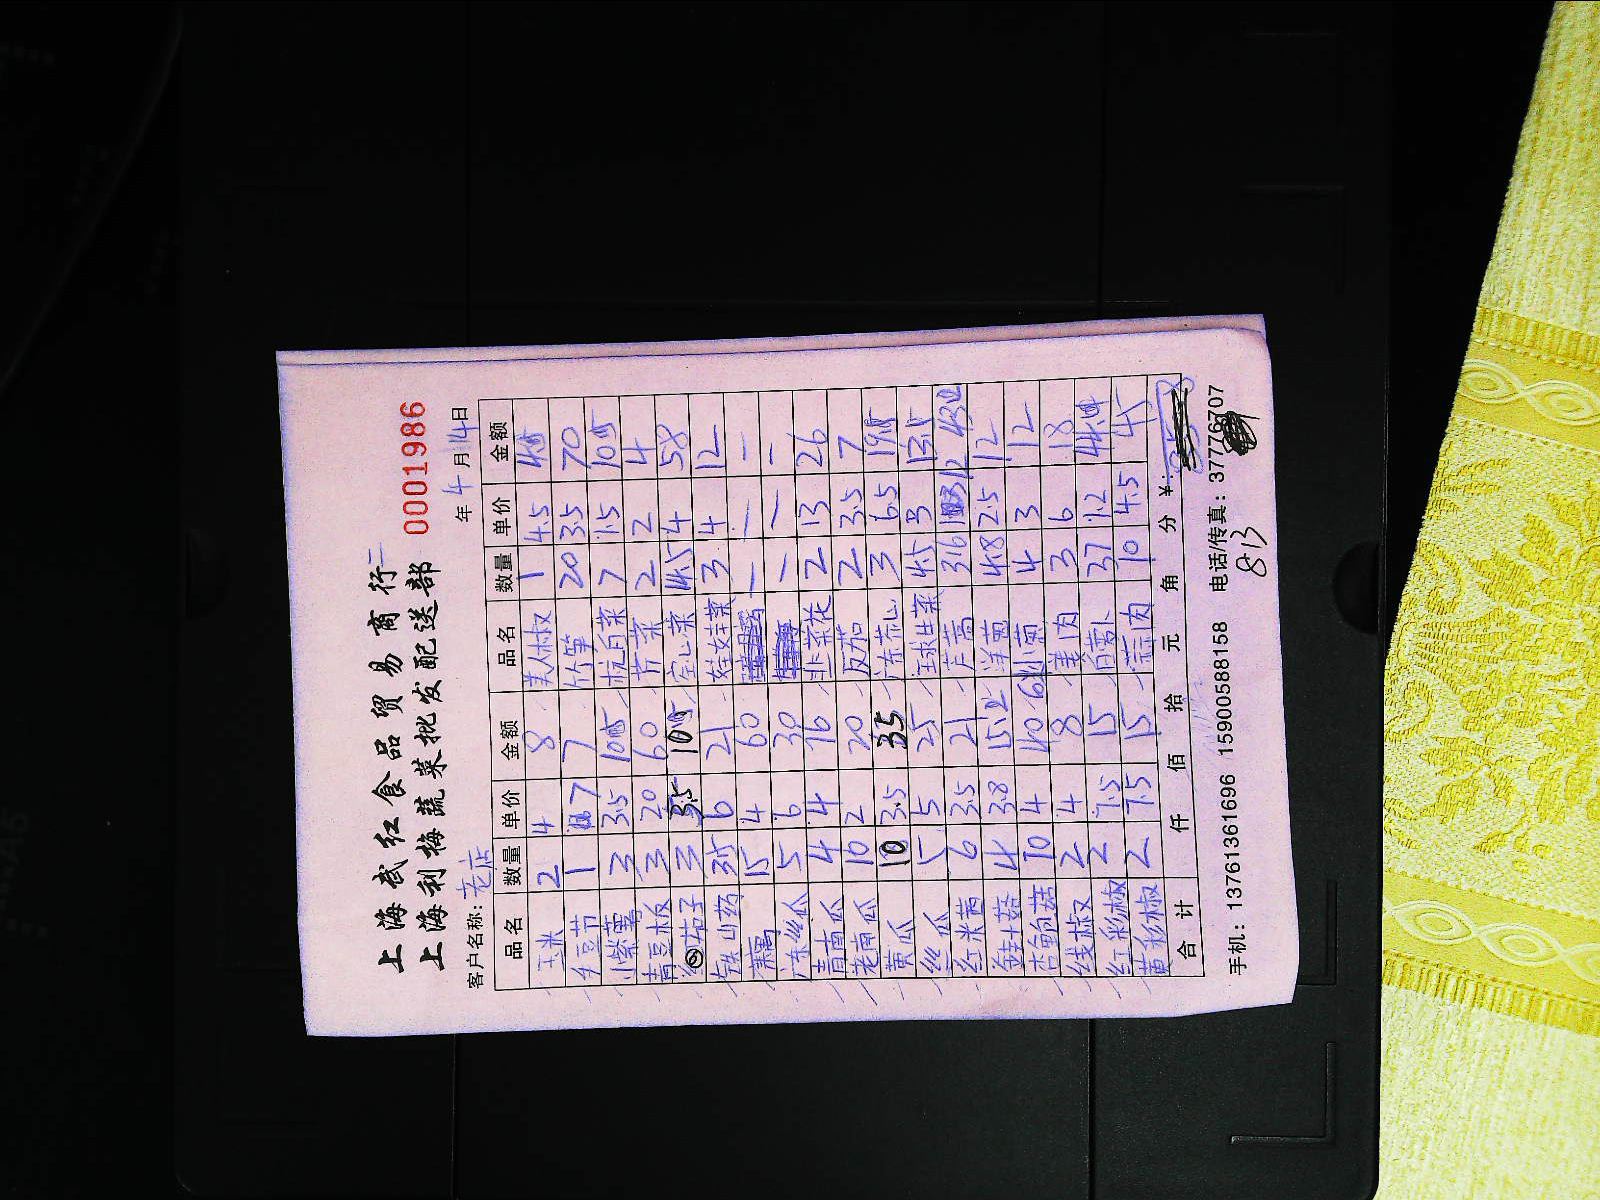 上海武红食品贸易商行
上海利梅蔬菜批发配送部
0001986
客户名称：老店 年 4 月 14 日
品名 数量 单价 金额 品名 数量 单价 金额
玉米 2 4 8 美人椒 1 4.5
7 竹笋 20 3.5 70
小紫薯 3 3.5 杭白菜 7 1.5
青豆板 3 20 60 芹菜 2 2 4
茄子 3 3.5 14.5 4 58
铁山药 3.5 6 21 娃娃菜 3 4 12
15 4 60
广东丝瓜 5 6 30
青南瓜 4 4 16 韭菜花 2 13 26
老南瓜 10 2 20 2 3.5 7
黄瓜 10 3.5 35 3 6.5
丝瓜 5 5 25 球生菜 4.5 3
红米苋 6 3.5 21 芦蒿 3.6 12
金针菇 4 3.8 4.8 2.5 12
杏鲍菇 10 4 40 4 3 12
线椒 2 4 8 姜肉 3 6 18
红彩椒 2 7.5 15 37 1.2
黄彩椒 2 7.5 15 蒜肉 10 4.5 45
合计 仟 佰 拾 元 角 分 ¥：
手机：13761361696 15900588158 电话/传真：37776707
813